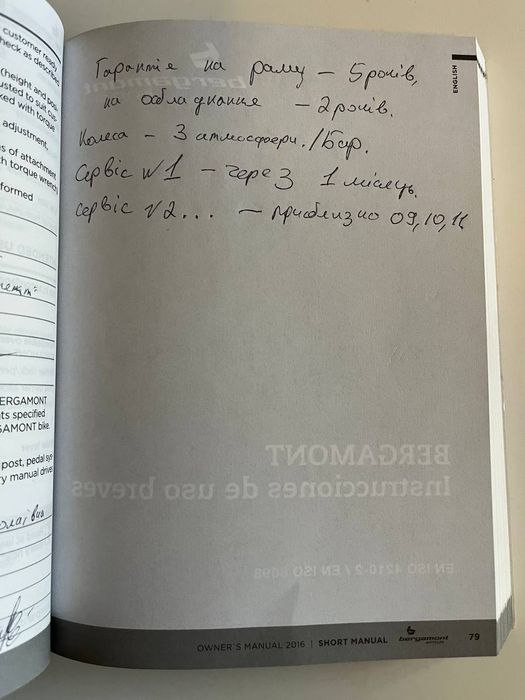 customer ready
heck as described
(height and posi-
usted to suit cus-
ked with torque
adjustment.
s of attachment
h torque wrench
formed
ERGAMONT
ts specified
GAMONT bike.
post, pedal sys
ry manual drive
bergamont
ENGLISH
Гарантіє на раму – 5 років,
на обладнання – 2 років.
Колеса – 3 атмосфери./Бар.
Сервіс №1 – через 1 місяць.
сервіс №2... – приблизно 09,10,11
BERGAMONT
Instrucciones de uso breves
EN ISO 4210-2 / EN ISO 8098
OWNER'S MANUAL 2016 | SHORT MANUAL bergamont 79